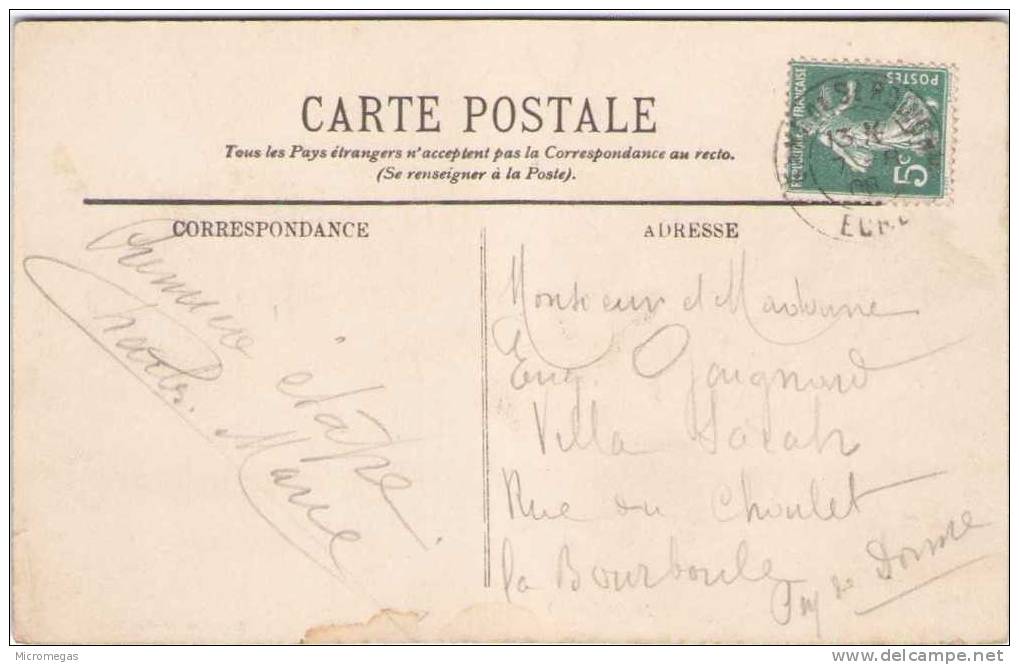 CARTE POSTALE
Tous les Pays étrangers n'acceptent pas la Correspondance au recto.
(Se renseigner à la Poste).
CORRESPONDANCE
ADRESSE
étape.
Charles. Marie
Monsieur et Madame
Eug. Gougnard
Villa Sarah
Rue du Choulet
la Bourboule
Puy de Dome
REPUBLIQUE FRANÇAISE
POSTES
5c
EURE
Micromegas
www.delcampe.net